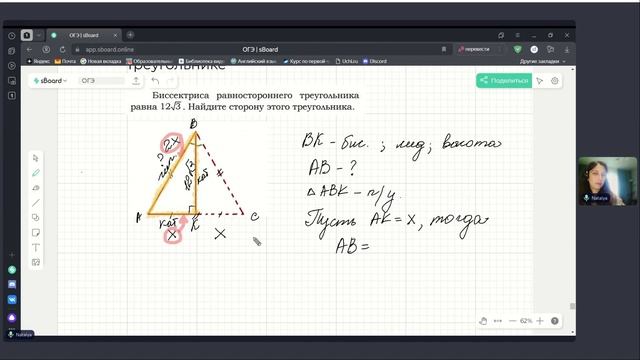 ОГЭ | sBoard
ОГЭ | sBoard
app.sboard.online
перевести
Яндекс
Почта
Новая вкладка
Образовательны
Библиотека виде
Английский язы
Курс по первой
Uchi.ru
Discord
треугольнике
sBoard
ОГЭ
Поделиться
Биссектриса равностороннего треугольника
равна 12√3. Найдите сторону этого треугольника.
B
2x
?
гип
12√3
кат
A
кат
K
C
x
x
BK – бис. ; мед; высота
AB – ?
△ABK – п/у.
Пусть AK = x, тогда
AB =
Natalya
Natalya
62%